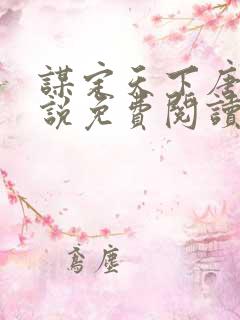 謀定天下唐
說免費閱讀
鸞塵